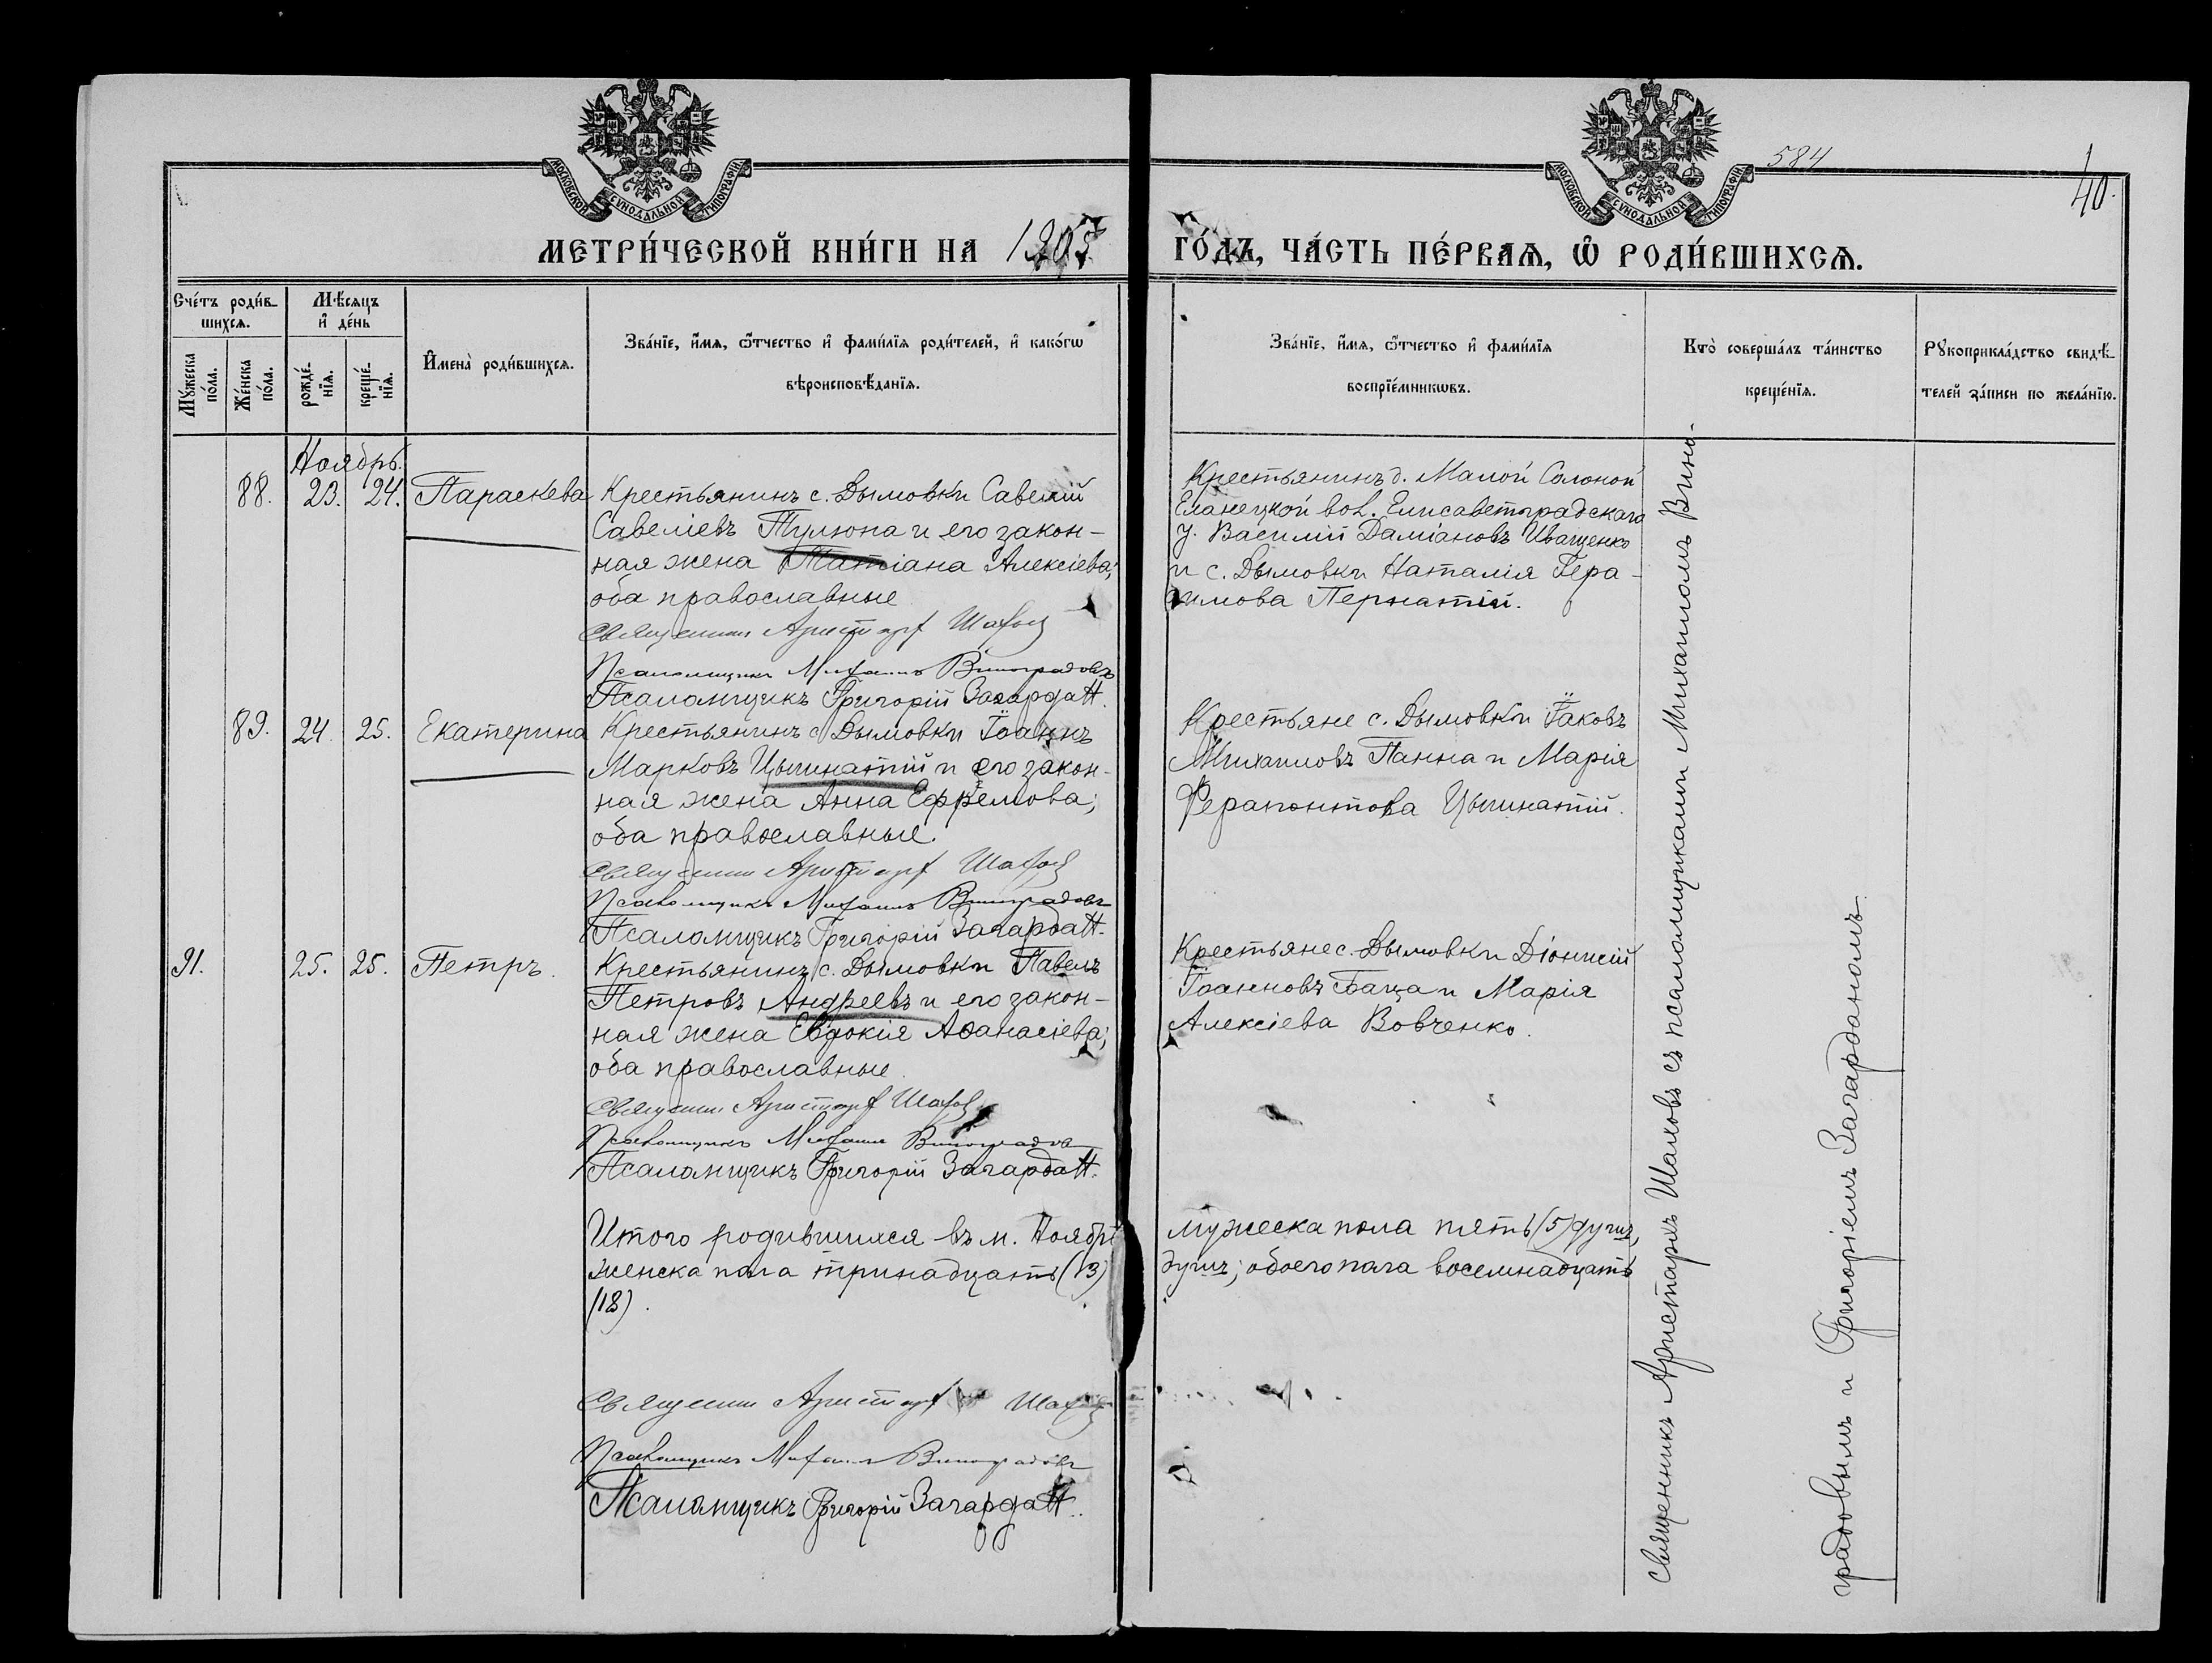 МОСКОВСКОЙ СѴНОДАЛЬНОЙ ТИПОГРАФІИ
МОСКОВСКОЙ СѴНОДАЛЬНОЙ ТИПОГРАФІИ
584
40.
МЕТРИ́ЧЕСКОЙ КНИ́ГИ НА 1905 ГО́ДЪ, ЧА́СТЬ ПЕ́РВАѦ, Ѡ҆ РОДИ́ВШИХСѦ.
Сче́тъ роди́в-
шихсѧ.
Мѣ́сѧцъ
и҆ де́нь
Мꙋ́жеска
по́ла.
Же́нска
по́ла.
рожде́-
нїѧ.
креще́-
нїѧ.
И҆мена̀ роди́вшихсѧ.
Зва́нїе, и҆́мѧ, ѻ҆́тчество и҆ фами́лїѧ роди́телей, и҆ како́гѡ
вѣроисповѣ́данїѧ.
Зва́нїе, и҆́мѧ, ѻ҆́тчество и҆ фами́лїѧ
воспрїе́мникѡвъ.
Кто̀ соверша́лъ та́инство
креще́нїѧ.
Рꙋкоприкла́дство свидѣ́-
телей за́писи по жела́нїю.
Ноябрь.
88. 23. 24. Параскева
Крестьянинъ с. Дымовки Савелій
Савеліевъ Тулюпа и его закон-
ная жена Татіана Алексіева;
оба православные
Священник Аристарх Шахов
Псаломщикъ Михаилъ Виноградовъ
Псаломщикъ Григорій Загардан.
Крестьянинъ д. Малой Солоной
Еланецкой вол. Елисаветградскаго
у. Василій Даміановъ Иващенко
и с. Дымовки Наталія Гера-
симова Пернатій.
89. 24. 25. Екатерина
Крестьянинъ с. Дымовки Іоаннъ
Марковъ Цыгинатій и его закон-
ная жена Анна Ефремова;
оба православные.
Священник Аристарх Шахов
Псаломщикъ Михаилъ Виноградовъ
Псаломщикъ Григорій Загардан.
Крестьяне с. Дымовки Іаковъ
Михаиловъ Панна и Марія
Ферапонтова Цыгинатій.
91. 25. 25. Петръ.
Крестьянинъ с. Дымовки Павелъ
Петровъ Андреевъ и его закон-
ная жена Евдокія Аѳанасіева;
оба православные.
Священник Аристарх Шахов
Псаломщикъ Михаилъ Виноградов
Псаломщикъ Григорій Загардан.
Крестьяне с. Дымовки Діонисій
Іоанновъ Баца и Марія
Алексіева Вовченко.
Итого родившихся въ м. Ноябрѣ мужеска пола пять (5) душъ,
женска пола тринадцать (13) душъ; обоего пола восемнадцать
(18).
Священник Аристарх Шахов
Псаломщикъ Михаилъ Виноградовъ
Псаломщикъ Григорій Загардан.
Священникъ Аристархъ Шаховъ съ псаломщиками Михаиломъ Вино-
градовымъ и Григоріемъ Загарданомъ.